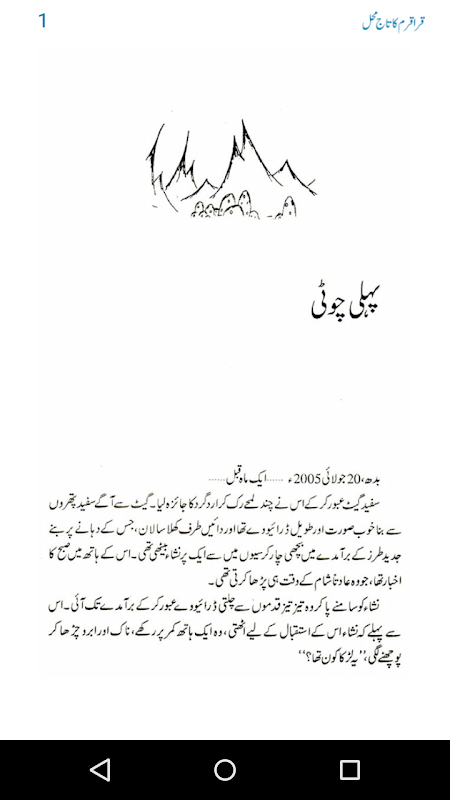 1
قراقرم کا تاج محل
پہلی چوٹی
بدھ، 20 جولائی 2005ء ...... ایک ماہ قبل ......
سفید گیٹ عبور کر کے اس نے چند لمحے رک کر ارد گرد کا جائزہ لیا۔ گیٹ سے آگے سفید پتھروں
سے بنا خوب صورت اور طویل ڈرائیووے تھا اور دائیں طرف کھلا سا لان، جس کے دہانے پر بنے
جدید طرز کے برآمدے میں بچھی چار کرسیوں میں سے ایک پر نشاء بیٹھی تھی۔ اس کے ہاتھ میں صبح کا
اخبار تھا، جو وہ عادتاً شام کے وقت ہی پڑھا کرتی تھی۔
نشاء کو سامنے پا کر وہ تیز تیز قدموں سے چلتی ڈرائیووے عبور کر کے برآمدے تک آئی۔ اس
سے پہلے کہ نشاء اس کے استقبال کے لیے اٹھتی، وہ ایک ہاتھ کمر پر رکھے، ناک اور ابرو چڑھا کر
پوچھنے لگی، ’’یہ لڑکا کون تھا؟‘‘